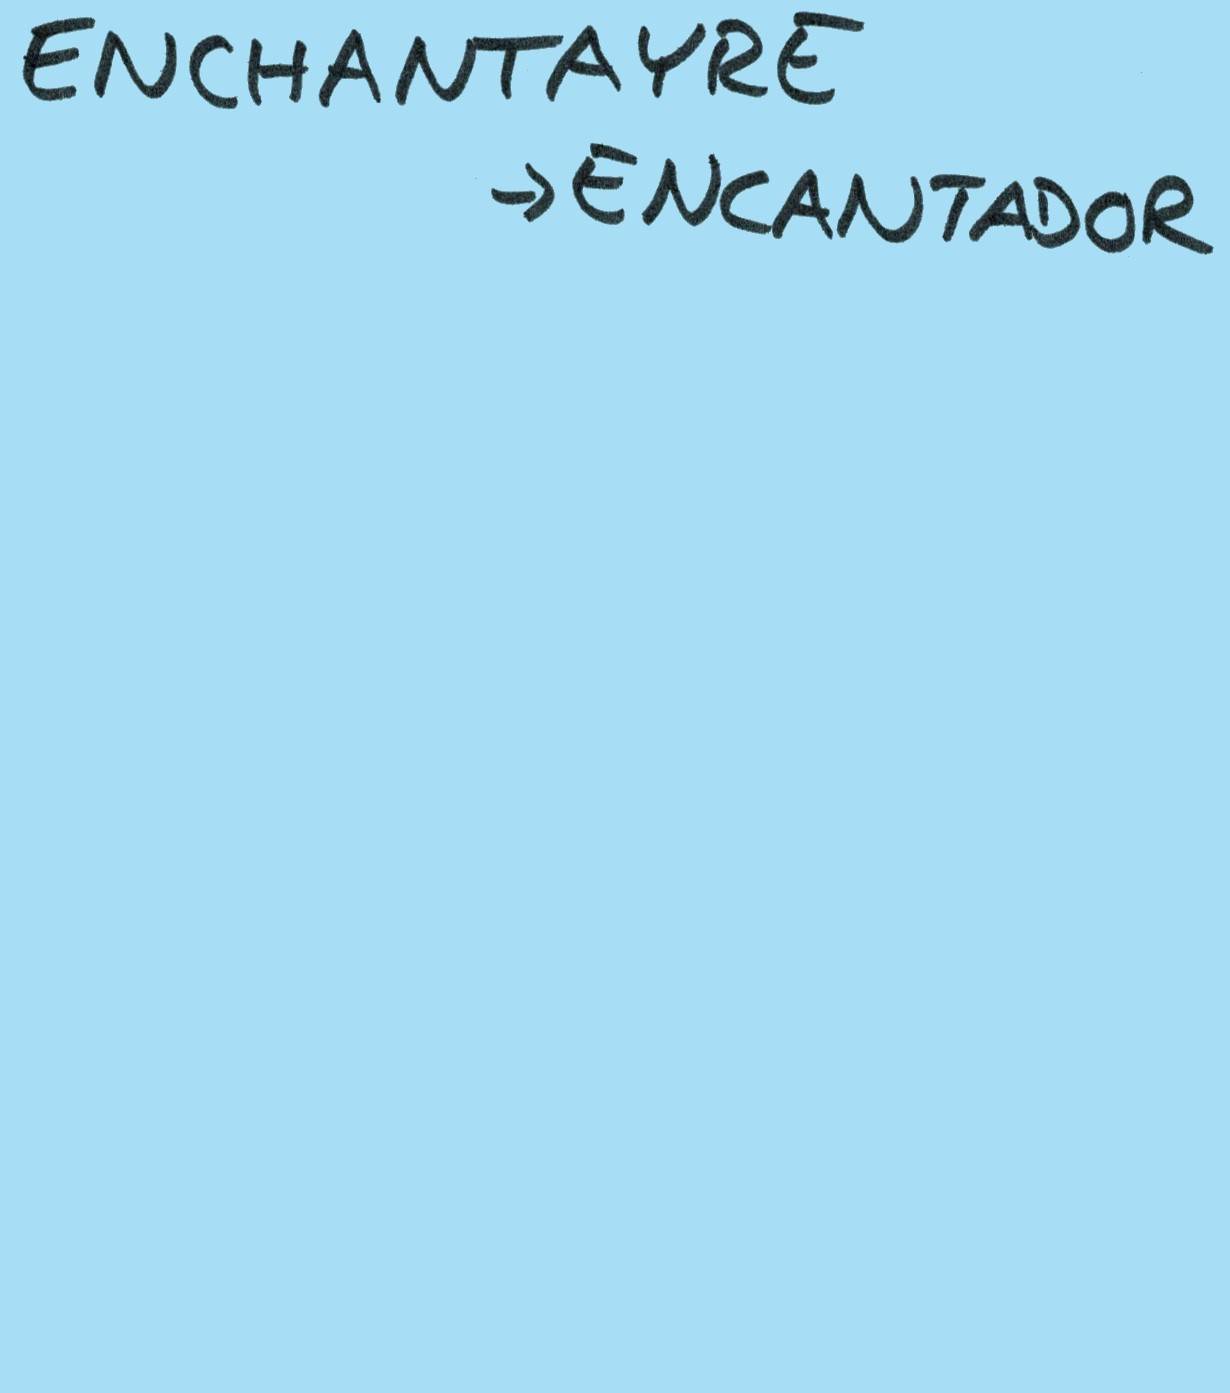 ENCHANTAYRE
→ENCANTADOR